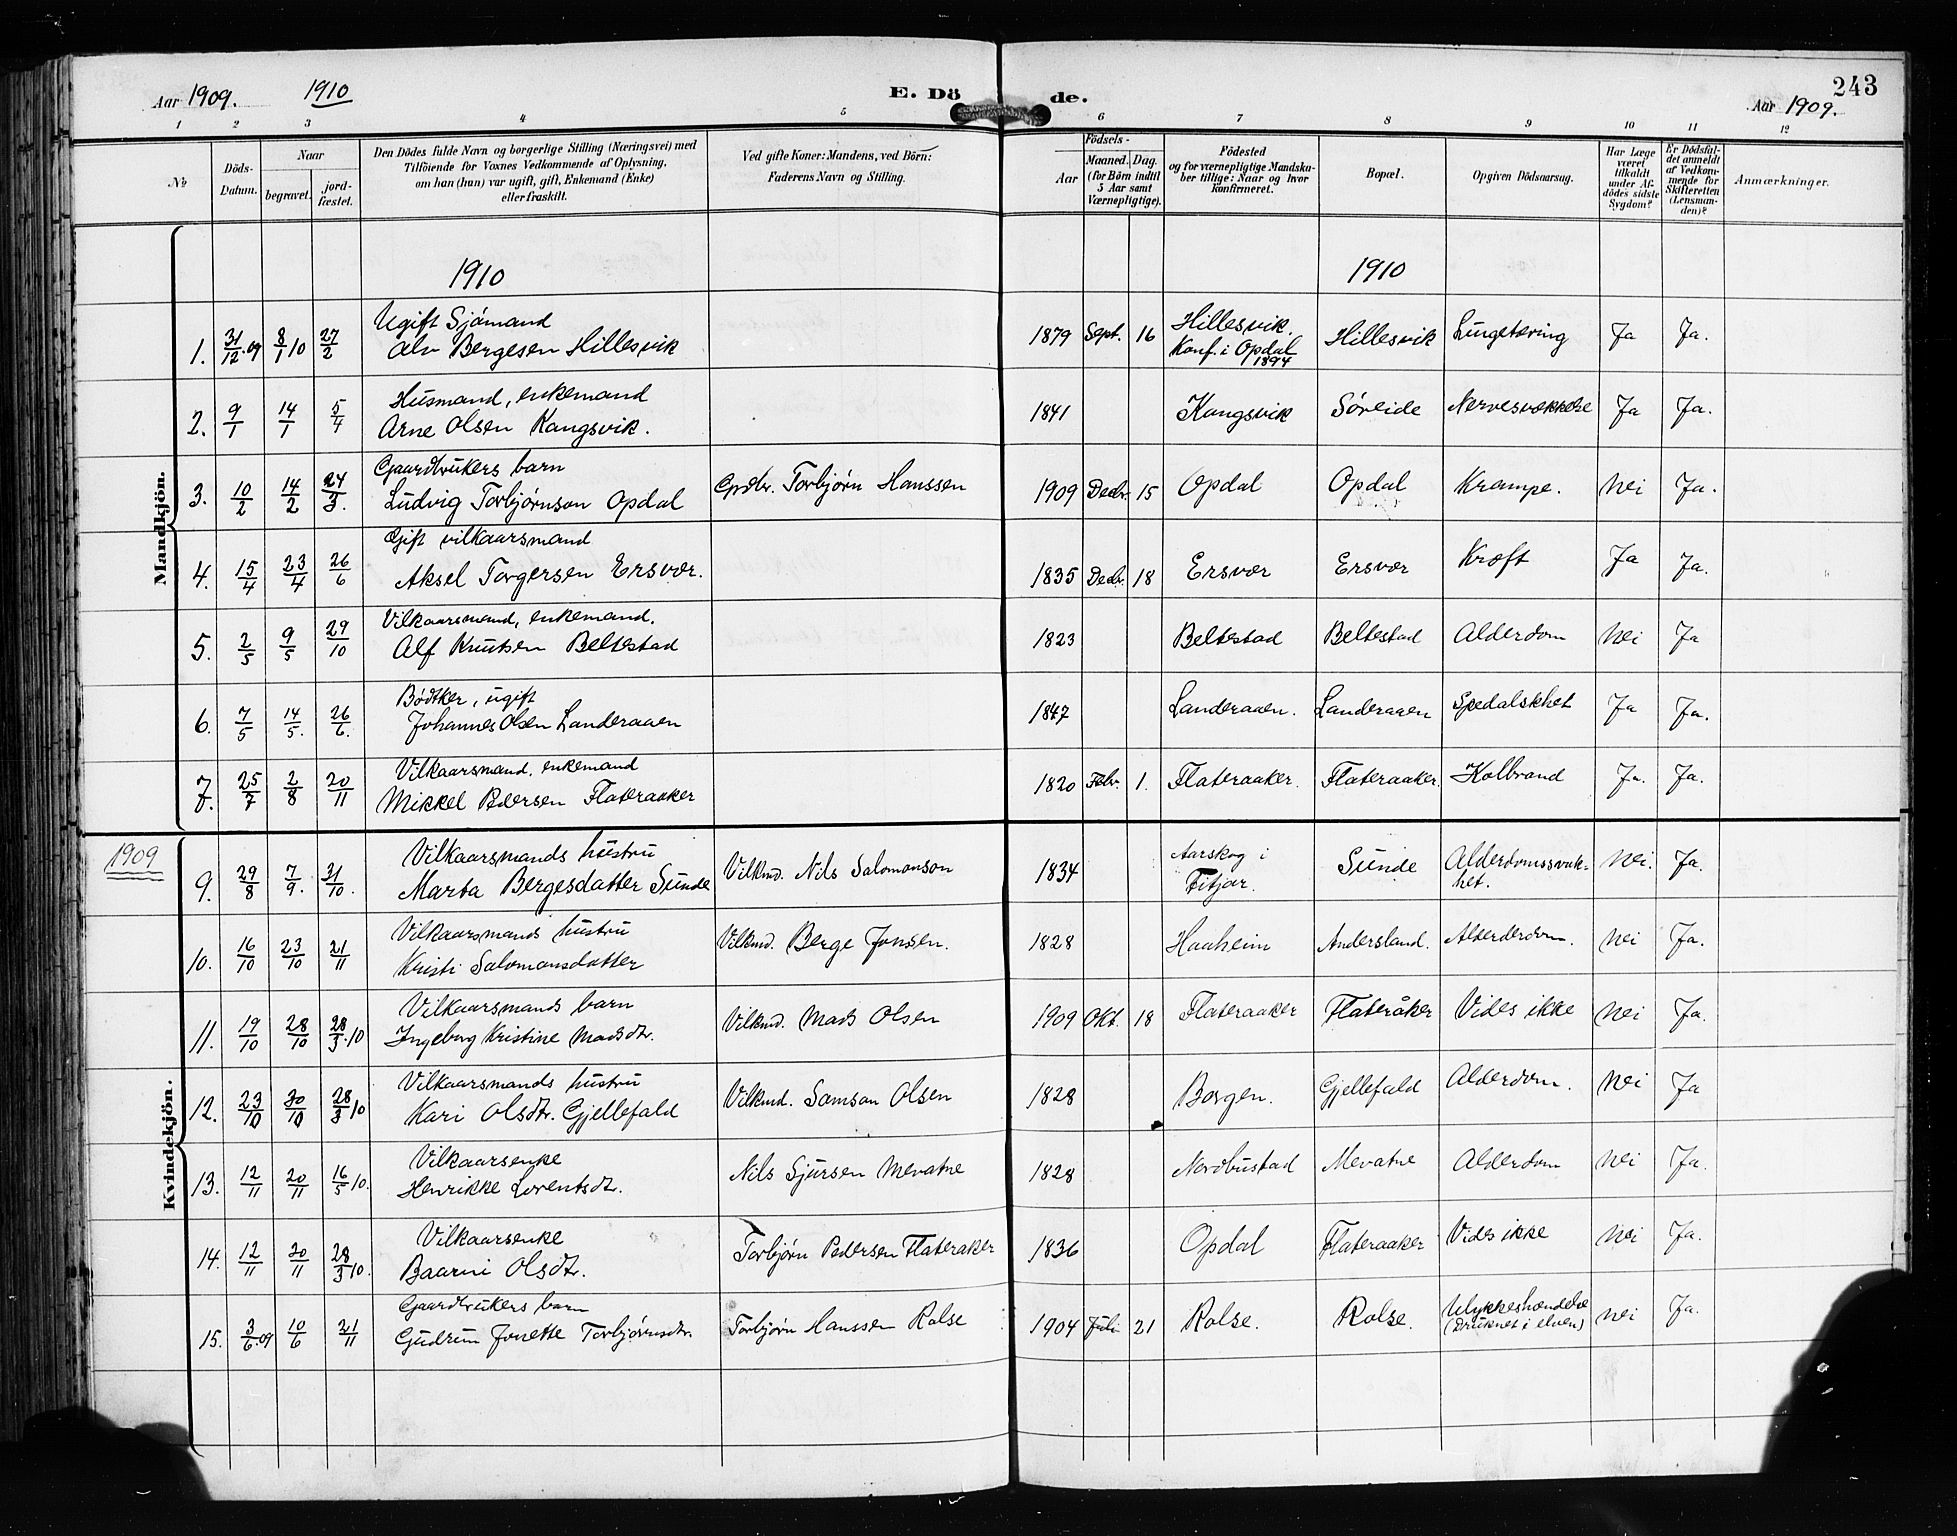 Aar 1909. 1910 E. Dö de. 243
Aar 1909.
1 2 3 4 5 6 7 8 9 10 11 12
№
Döds-Datum.
Naar
begravet.
jord-fæstet.
Den Dödes fulde Navn og borgerlige Stilling (Næringsvei) med
Tilföiende for Voxnes Vedkommende af Oplysning,
om han (hun) var ugift, gift, Enkemand (Enke)
eller fraskilt.
Ved gifte Koner: Mandens, ved Börn:
Faderens Navn og Stilling.
Födsels-
Aar
Maaned. Dag.
(for Börn indtil
5 Aar samt
Værnepligtige).
Födested
og for værnepligtige Mandska-
ber tillige: Naar og hvor
konfirmeret.
Bopæl.
Opgiven Dödsaarsag.
Har Læge
været
tilkaldt
under Af-
dödes sidste
Sygdom?
Er Dödsfal-
det anmeldt
af Vedkom-
mende for
Skifteretten
(Lensman-
den)?
Anmærkninger.
Mandkjön.
1910 1910
1. 31/12.09 8/1 10 27/2 Ugift Sjömand
Alv Bergesen Hillesvik 1879 Sept. 16 Hillesvik.
Konf. i Opdal
1894 Hillesvik Lungetæring Ja Ja.
2. 9/1 14/1 5/4 Husmand, enkemand
Arne Olsen Kangsvik. 1841 Kangsvik Søreide Nervesvækkelse Ja Ja.
3. 10/2 14/2 24/3. Gaardbrukers barn
Ludvig Torbjørnson Opdal Grdbr. Torbjørn Hanssen 1909 Decbr. 15 Opdal Opdal Krampe. Nei Ja.
4. 15/4 23/4 26/6 Gift vilkaarsmand
Aksel Torgersen Ersvær. 1835 Decbr. 18 Ersvær Ersvær Kræft Ja Ja.
5. 2/5 9/5 29/10 Vilkaarsmand, enkemand.
Alf Knutsen Beltestad 1823 Beltestad Beltestad Alderdom Nei Ja
6. 7/5 14/5. 26/6. Bødtker, ugift
Johannes Olsen Landeraaen 1847 Landeraaen. Landeraaen Spedalskhet Ja Ja.
7. 25/7 2/8 20/11 Vilkaarsmand, enkemand
Mikkel Pedersen Flateraaker 1820 Febr. 1. Flateraaker. Flateraaker. Kolbrand Ja. Ja.
1909
Kvindekjön.
9. 29/8 7/9. 31/10. Vilkaarsmands hustru
Marta Bergesdatter Sunde Vilkmd. Nils Salomonson 1834 Aarskog i
Fitjar. Sunde Alderdomssvak-
het. Nei. Ja.
10. 16/10 23/10 21/11 Vilkaarsmands hustru
Kristi Salomonsdatter Vilkmd. Berge Jonsen. 1828 Haaheim Andersland. Alderderdom. Nei Ja.
11. 19/10 28/10 28/3.10 Vilkaarsmands barn
Ingeborg Kristine Madsdtr. Vilkmd. Mads Olsen 1909 Okt. 18 Flateraaker Flateråker Vides ikke Nei Ja.
12. 23/10 30/10 28/3 10 Vilkaarsmands hustru
Kari Olsdtr. Gjellefald Vilkmd. Samson Olsen 1828 Borgen. Gjellefald Alderdom. Nei Ja
13. 12/11 20/11 16/5 10. Vilkaarsenke
Henrikke Lorentsdtr. Nils Sjursen Mevatne 1828 Nordbustad Mevatne Alderdom Nei Ja.
14. 12/11 20/11 28/3 10. Vilkaarsenke
Baarni Olsdtr. Torbjørn Pedersen Flateraker 1836 Opdal Flateraaker Vides ikke Nei Ja.
15. 3/6.09 10/6 21/11 Gaardbrukers barn
Gudrun Jonette Torbjørnsdtr. Torbjørn Hanssen Rolse 1904 Juli 21 Rolse. Rolse. Ulykkeshændelse
(Druknet i elven) Nei Ja.